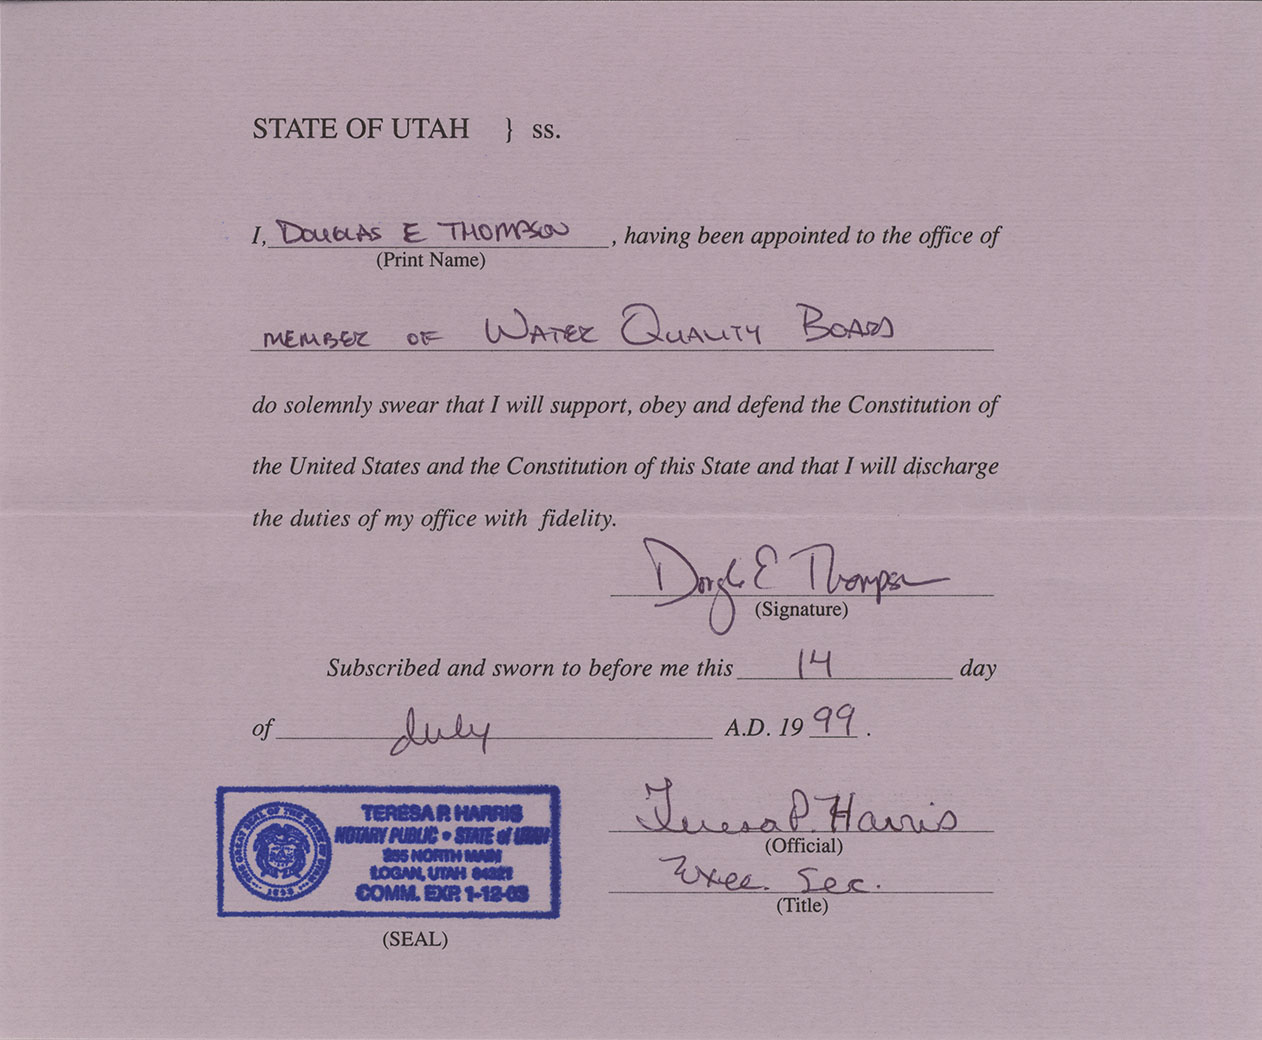 STATE OF UTAH } ss.
I, DOUGLAS E THOMPSON, having been appointed to the office of
(Print Name)
MEMBER OF WATER QUALITY BOARD
do solemnly swear that I will support, obey and defend the Constitution of
the United States and the Constitution of this State and that I will discharge
the duties of my office with fidelity.
Douglas E Thompson
(Signature)
Subscribed and sworn to before me this 14 day
of July A.D. 1999.
TERESA P. HARRIS
NOTARY PUBLIC • STATE of UTAH
255 NORTH MAIN
LOGAN, UTAH 84321
COMM. EXP. 1-12-03
THE GREAT SEAL OF THE STATE OF UTAH
1896
(SEAL)
Teresa P. Harris
(Official)
Exec. Sec.
(Title)